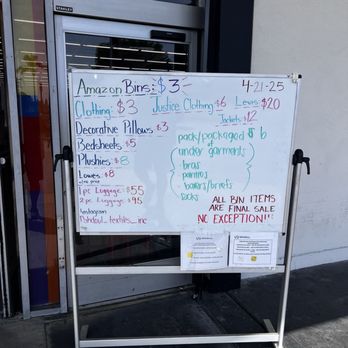 STANLEY
Amazon Bins: $3
4-21-25
Clothing: $3
Justice Clothing $6
Levis: $20
Jackets: $12
Decorative Pillows: $3
Bedsheets: $5
Plushies: $8
Lowes: $8
1 pc Luggage: $55
2 pc Luggage: $95
Instagram
pack/packaged $6
of
under garments
• bras
• panties
• boxers/briefs
• socks
ALL BIN ITEMS
ARE FINAL SALE
NO EXCEPTION!!